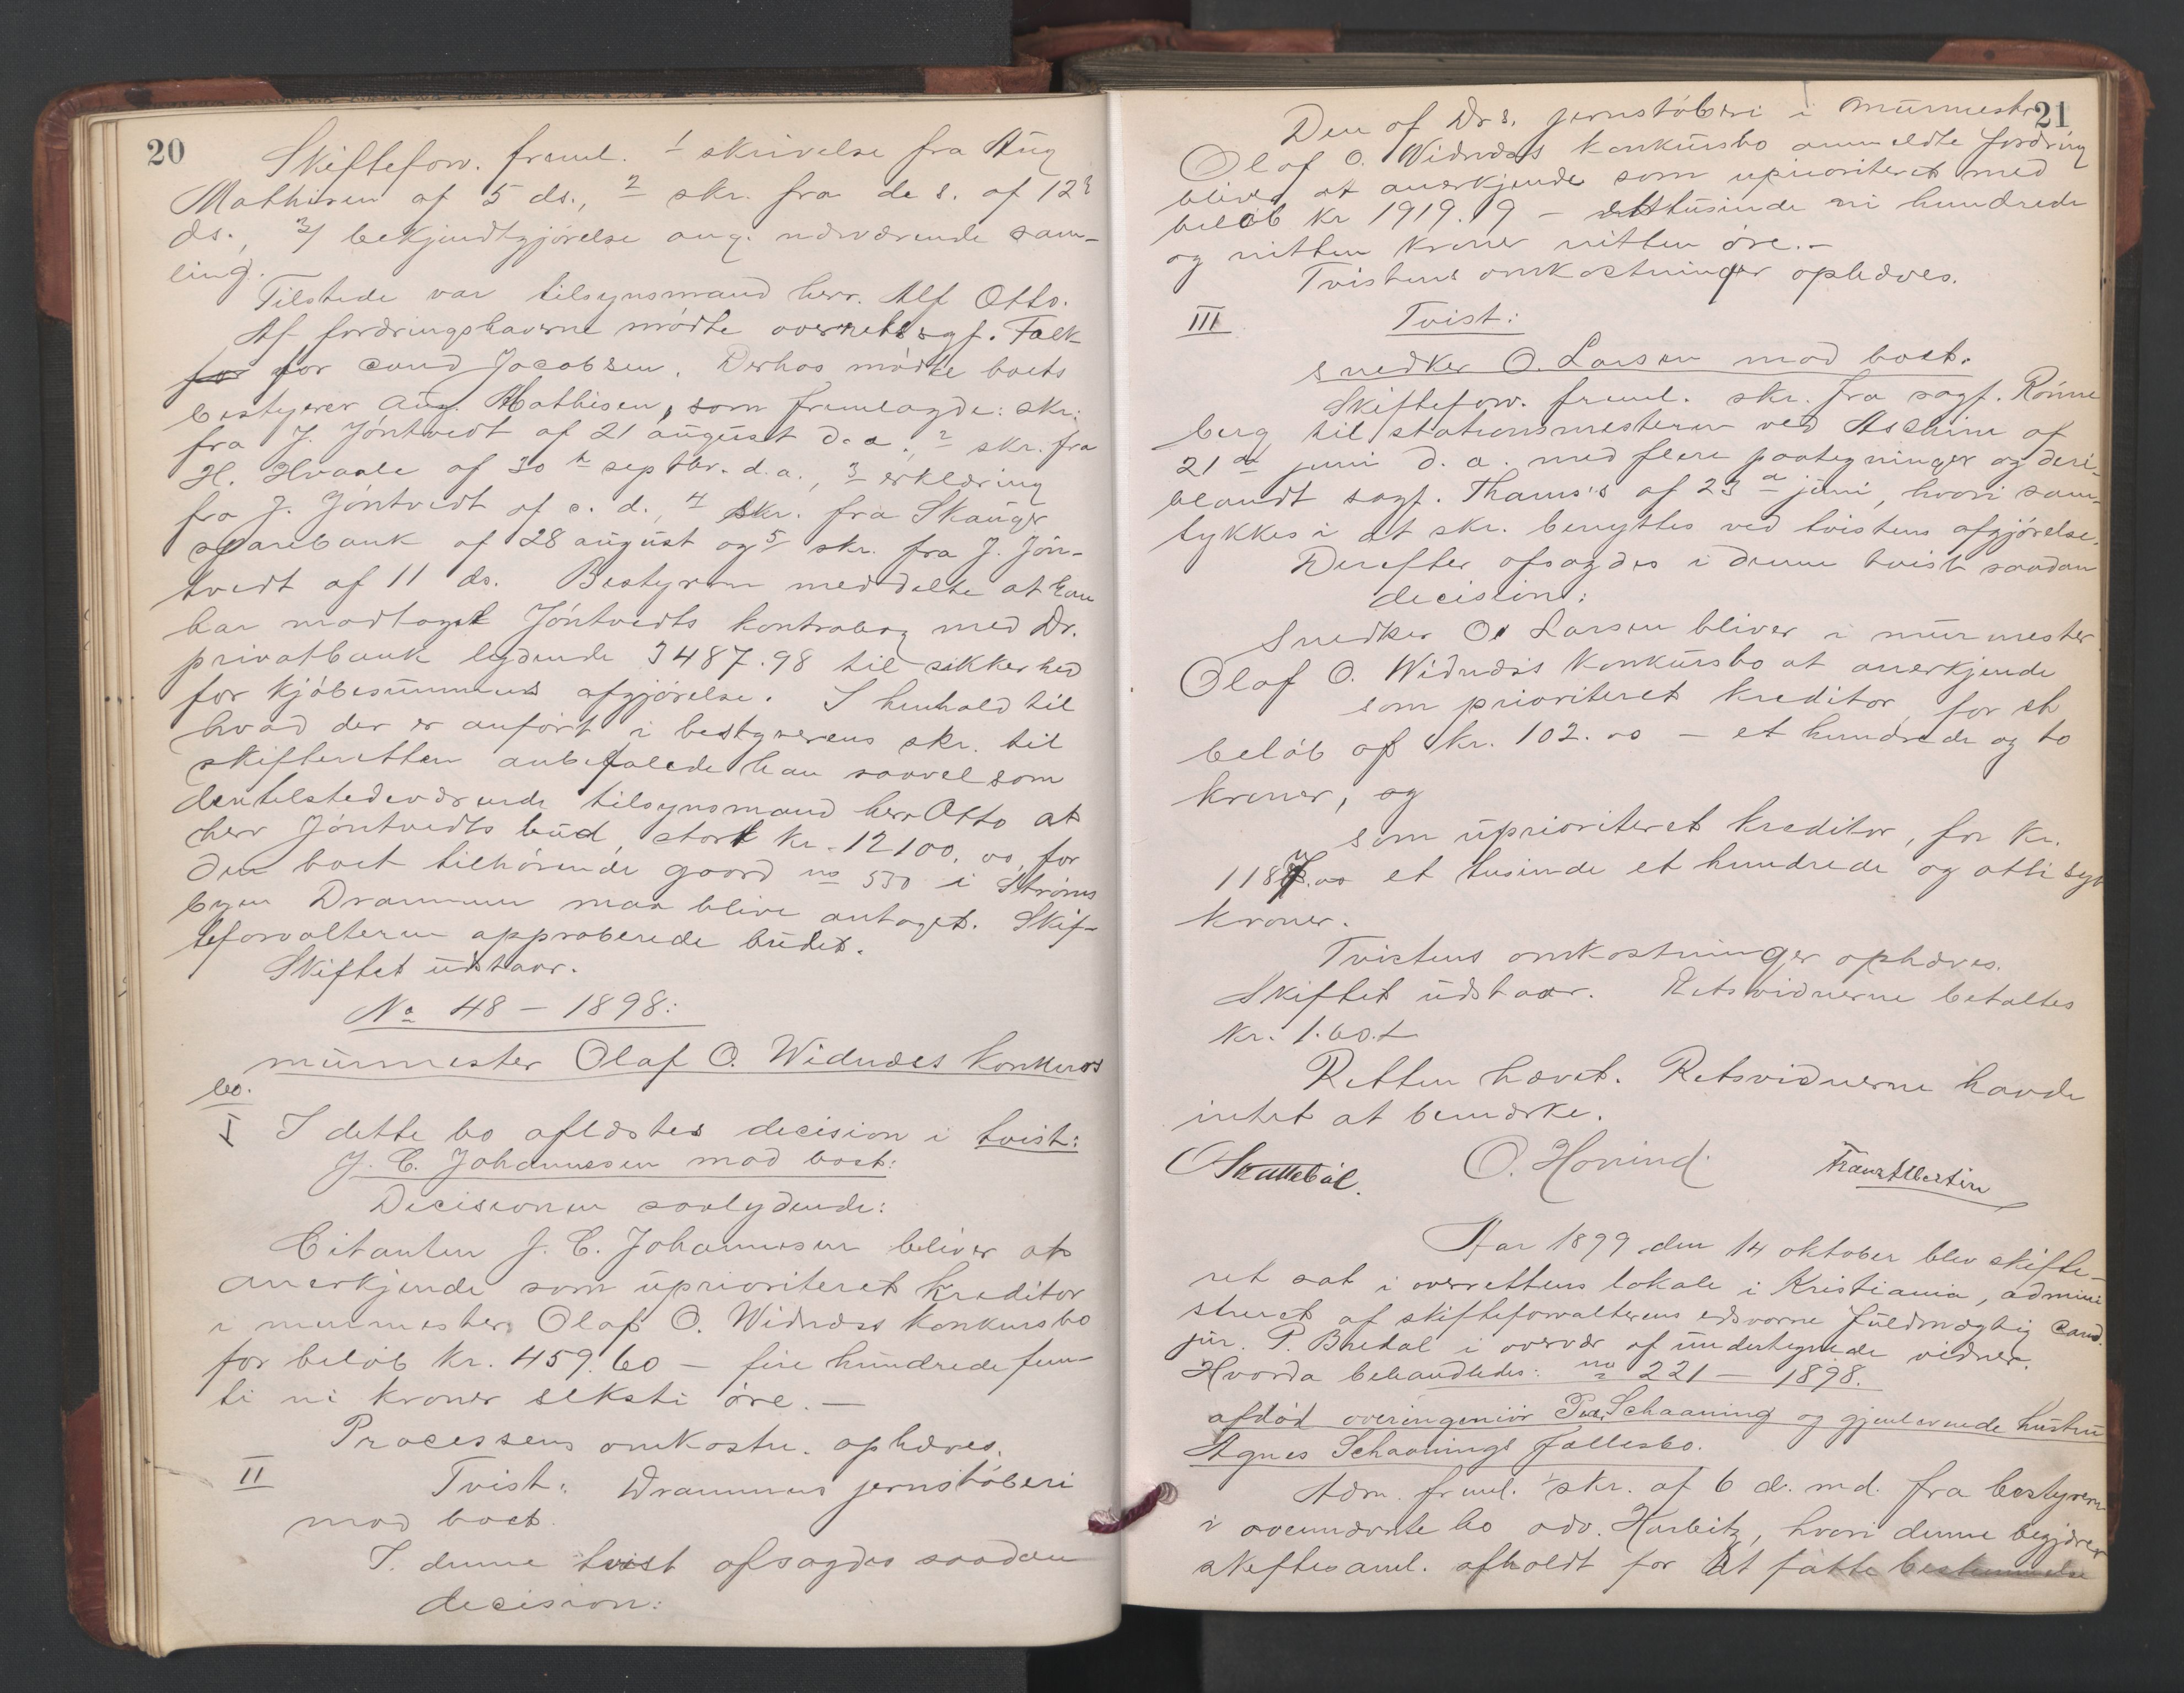 20
Skifteforv. freml. 1 skrivelse fra Aug
Mathisen af 5 ds., 2 skr. fra de s. af 12te
ds., 3/ bekjendtgjørelse ang. nærværende sam-
ling.
Tilstede var tilsynsmand herr. Alf Otto.
Af fordringshaverne mødte overretssagf. Falk
for for cand Jacobsen. Derhos mødte boets
bestyrer Aug. Mathisen, som fremlagde: skr:
fra J. Jöntvedt af 21 august d. a., 2 skr. fra
H. Hvaale af 30te septbr. d. a., 3 erklæring
fra J. Jöntvedt af s. d., 4 skr. fra Skauger
sparebank af 28 august og 5/ skr. fra J. Jön-
tvedt af 11 ds. Bestyreren meddelte at han
har modtaget Jöntvedts kontrabog med Dr.
privatbank lydende 3487.98 til sikkerhed
for kjøbesummens afgjørelse. I henhold til
hvad der er anført i bestyrerens skr. til
skifteretten anbefalede han saavel som
den tilstedeværende tilsynsmand herr Otto at
herr Jöntvedts bud, stort kr. 12100.00, for
den boet tilhørende gaard no 530 i Strøms
byen Drammen maa blive antaget. Skif-
teforvalteren approberede budet.
Skiftet udstaar.
No 48 – 1898:
murmester Olaf O. Widnæs konkurs
bo.
I I dette bo aflæstes decision i tvist:
J. C. Johannessen mod boet:
Decisionen saalydende:
Citanten J. C. Johannessen bliver at
anerkjende som uprioriteret kreditor
i murmester Olaf O. Widnæs konkursbo
for beløb kr. 459.60 – fire hundrede fem-
ti ni kroner seksti øre. –
Processens omkostn. ophæves.
II Tvist: Drammens jernstøberi
mod boet.
I denne tvist afsagdes saadan
decision:
21
Den af Drs. jernstøberi i murmester
Olaf O. Widnæs konkursbo anmeldte fordring
bliver at anerkjende som uprioriteret med
beløb kr 1919.19 – ettusinde ni hundrede
og nitten kroner nitten øre. –
Tvistens omkostninger ophæves.
III Tvist:
snedker O. Larsen mod boet.
Skifteforv. freml. skr. fra sagf. Rønne
berg til stationsmesteren ved Aschim af
21de juni d. a. med flere paategninger og deri-
blandt sagf. Thams's af 23de juni, hvori sam-
tykkes i at skr. benyttes ved tvistens afgjørelse.
Derefter afsagdes i denne tvist saadan
decision:
Snedker O. Larsen bliver i murmester
Olaf O. Widnæs konkursbo at anerkjende
som prioriteret kreditor, for et
beløb af kr. 102.00 – et hundrede og to
kroner, og
som uprioriteret kreditor, for kr.
1187.00 et tusinde et hundrede og otti syv
kroner.
Tvistens omkostninger ophæves.
Skiftet udstaar. Retsvidnerne betaltes
kr. 1.60.
Retten hævet. Retsvidnerne havde
intet at bemærke.
Skattebøl. O. Hovind. Franz Albertsen
Aar 1899 den 14 oktober blev skifte-
ret sat i overrettens lokale i Kristiania, admini
streret af skifteforvalterens edsvorne fuldmægtig Cand.
jur. P. Bredal i overvær af undertegnede vidner.
Hvorda behandledes: no 221 – 1898.
afdød overingeniør Schaaning og gjenlevende hustru
Agnes Schaanings fællesbo.
Adm. freml. 1/ skr. af 6 d. md. fra bestyreren
i ovennævnte bo adv. Harbitz, hvori denne begjærer
skiftesaml. afholdt for at fatte bestemmelse